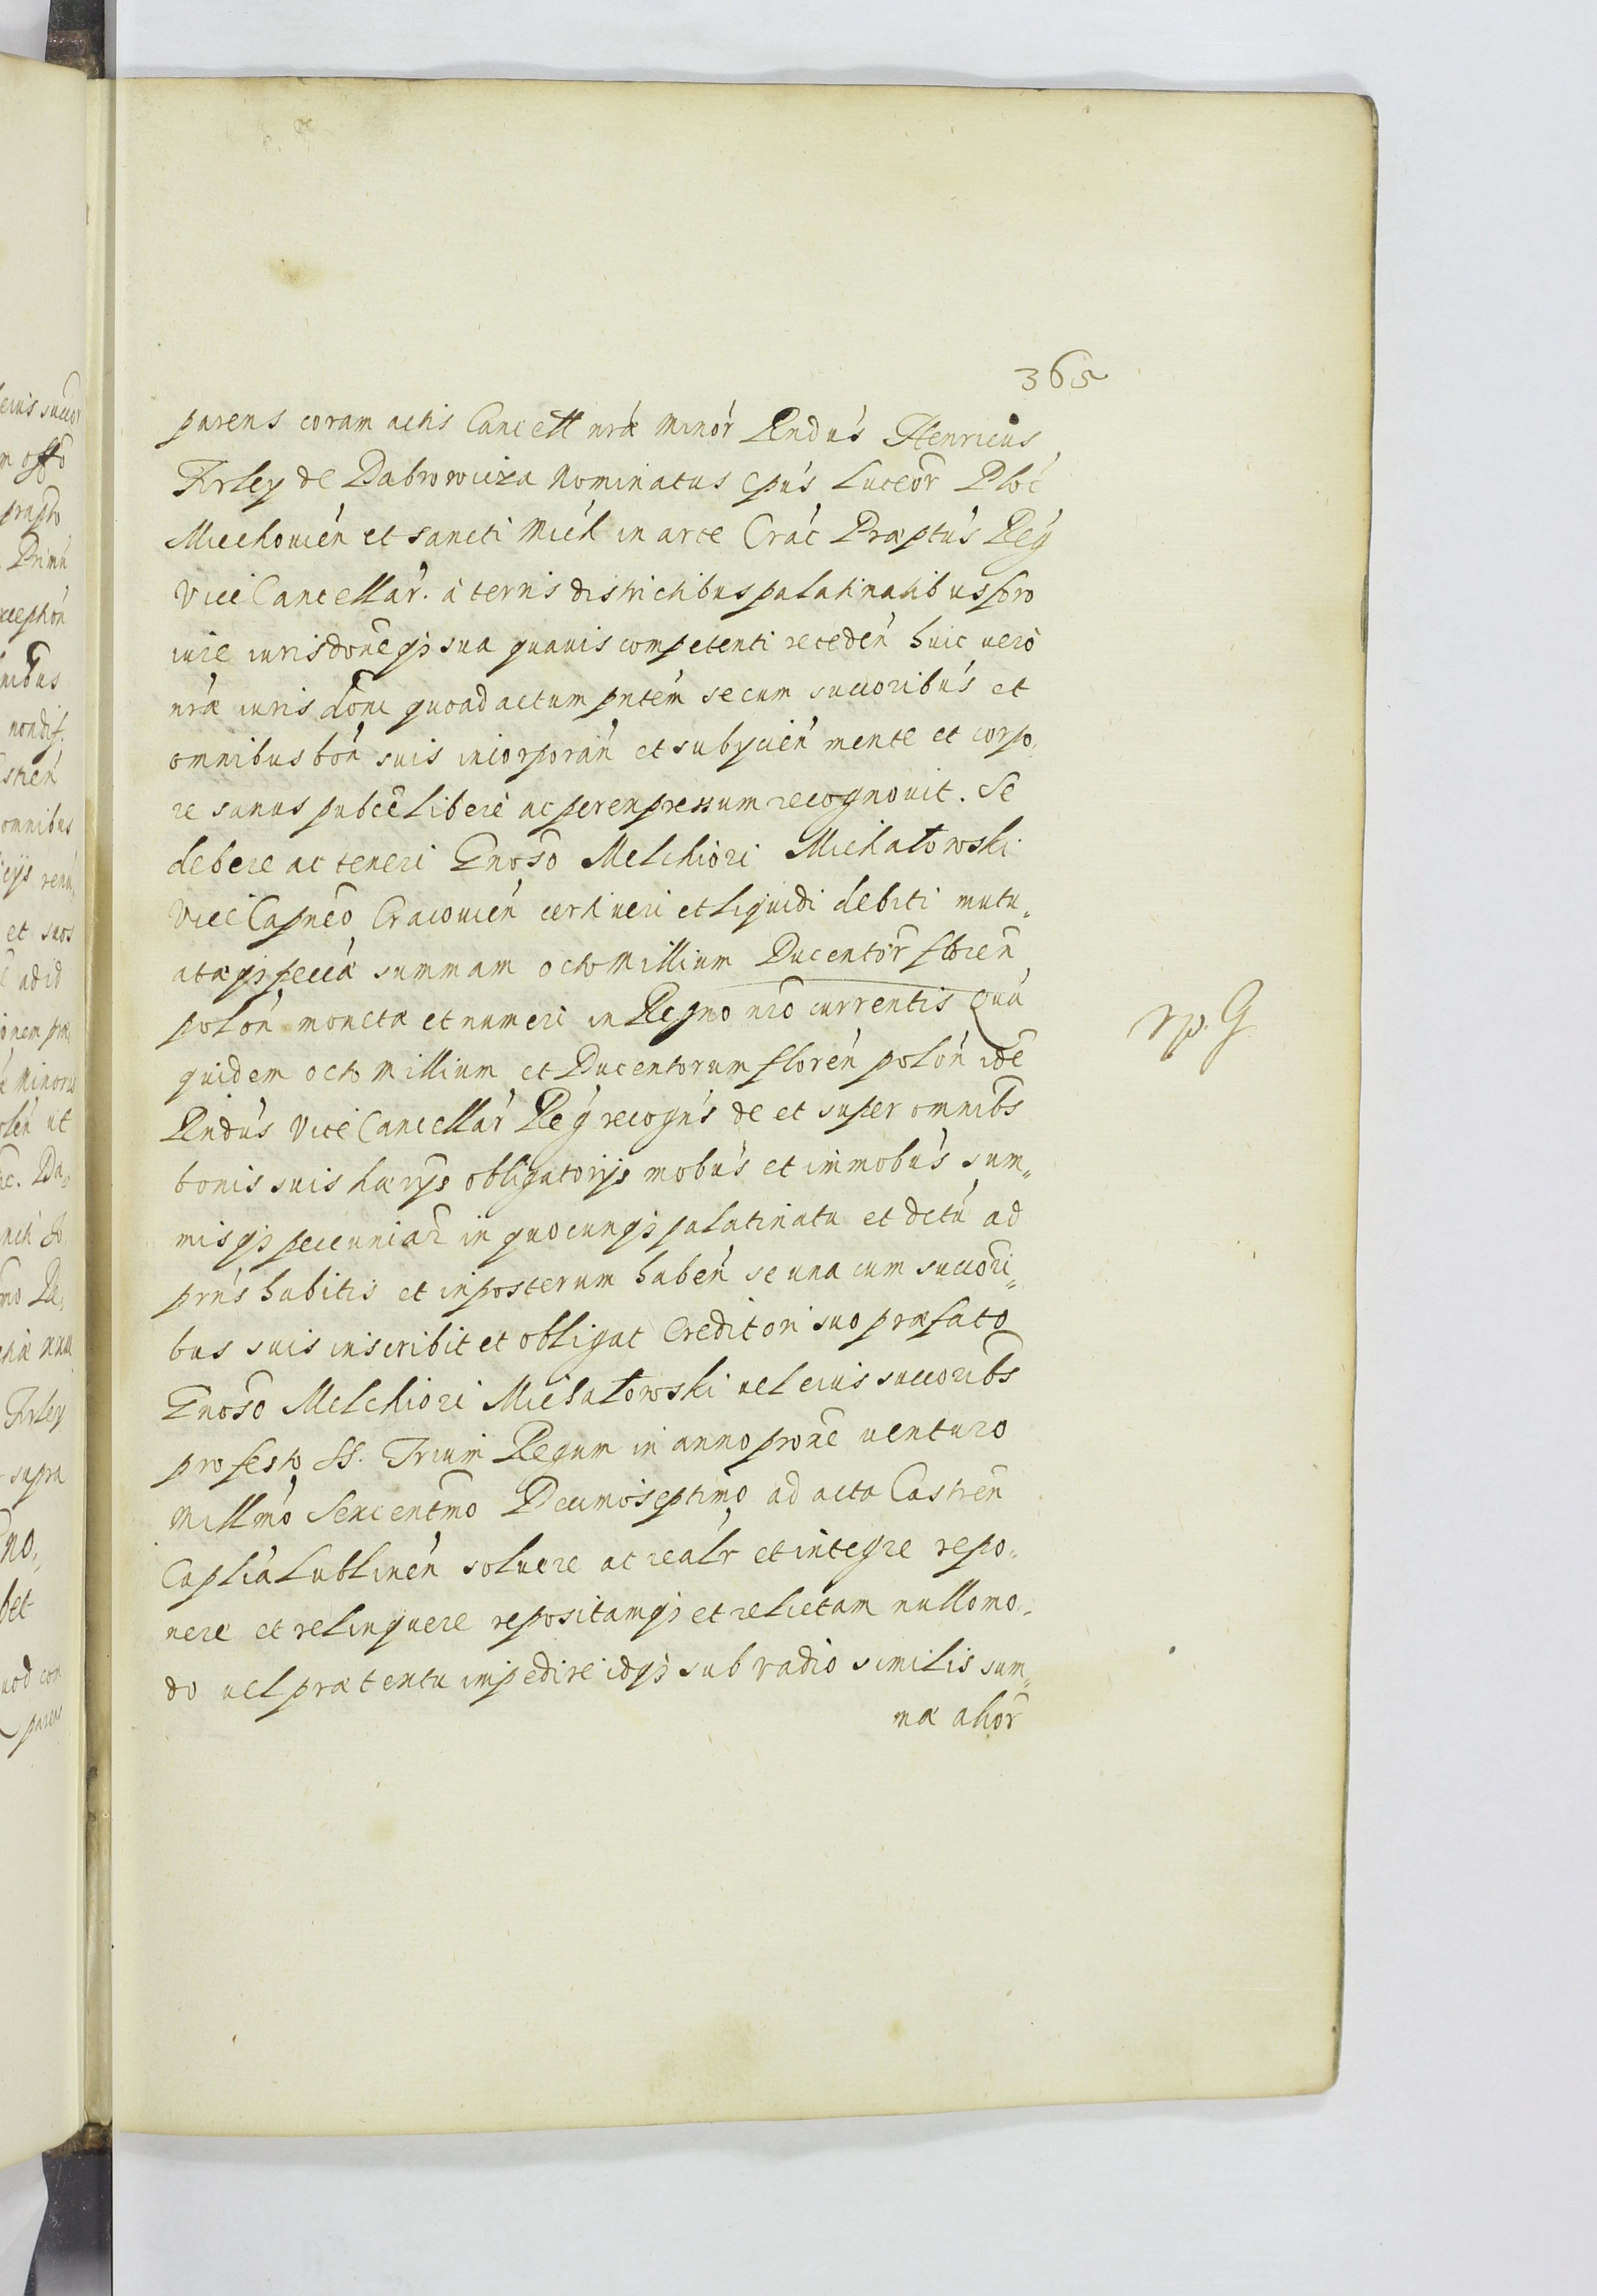 365
parens coram actis Cancell nrǽ minór Rndus Henricus
Firley de Dabrowicza Nominatus Epus Luceor̃ Ploć
Miechouień et sancti Micħ in arce Cráć Præptus Reǵ
Vice Cancellar̃. à terris districtibus palatinatibus foro
iure iurisdoneqȝ sua quauis competenti receden̄ huic uero
nræ iurisdoni quoad actum pntem se cum succoribus et
omnibus bon̄ suis incorporan̄ et subycien̄ mente et corpo,
re sanus pubce libere ac per expressum recognouit. Se
debere ac teneri Gnoso Melchiori Michałowski
Vice Capneo Cracouien̄ certi ueri et liquidi debiti mutu„
atæqȝ peccæ summam octo Millium Ducentor̃ floren̄
polon̄ monetæ et numeri in Regno nro currentis Qua
quidem octo Millium et Ducentorum floren̄ polon̄ ide
Rndus Vice Cancellar̃ Reǵ recogns de et super omnibs
bonis suis hærijs obligatorijs mobus et immobus sum„
misqȝ pecuniar̃ in quocunqȝ palatinatu et dctu ad
prns habitis et inposterum haben̄ se una cum succori„
bus suis inscribit et obligat Creditori suo præfato
Gnoso Melchiori Michałowski uel eius succoribs
pro festo SS. Trium Regum in anno prone venturo
Millmo Sexcentmo Decimoseptimo ad acta Castren̄
Caplia Lublinen̄ soluere ac realr̃ et integre repo„
nere et relinquere repositamqȝ et relictam nullo mo„
do uel prætentu impedire idqȝ sub vadio similis sum„
mæ alior̃
rp. G